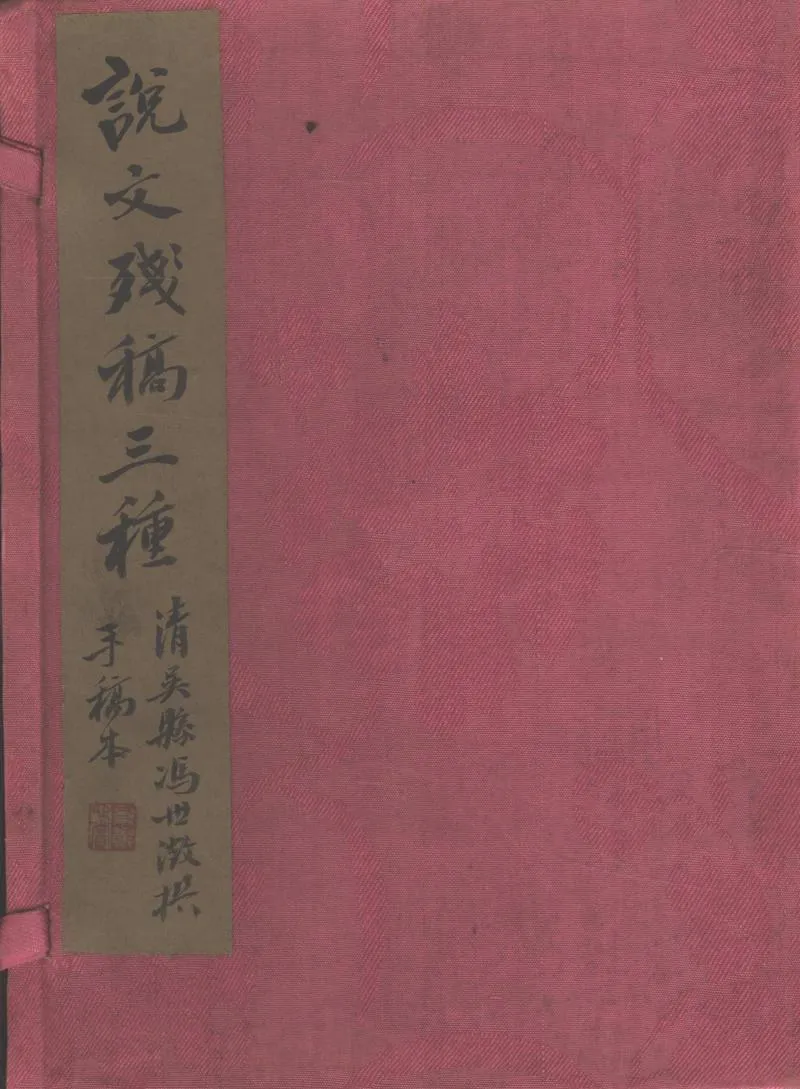 說文殘稿三種
清吳縣馮世澂撰
手稿本